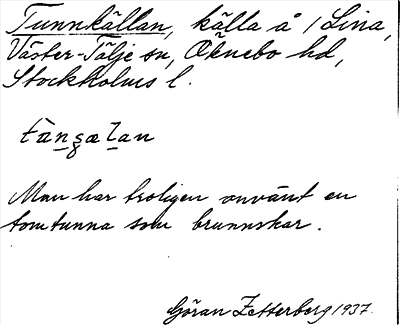 Tunnkällan, källa å / Lina,
Väster-Tälje sn, Öknebo hd,
Stockholms l.
tànsælan
Man har troligen använt en
tomtunna som brunnskar.
Göran Zetterberg 1937.